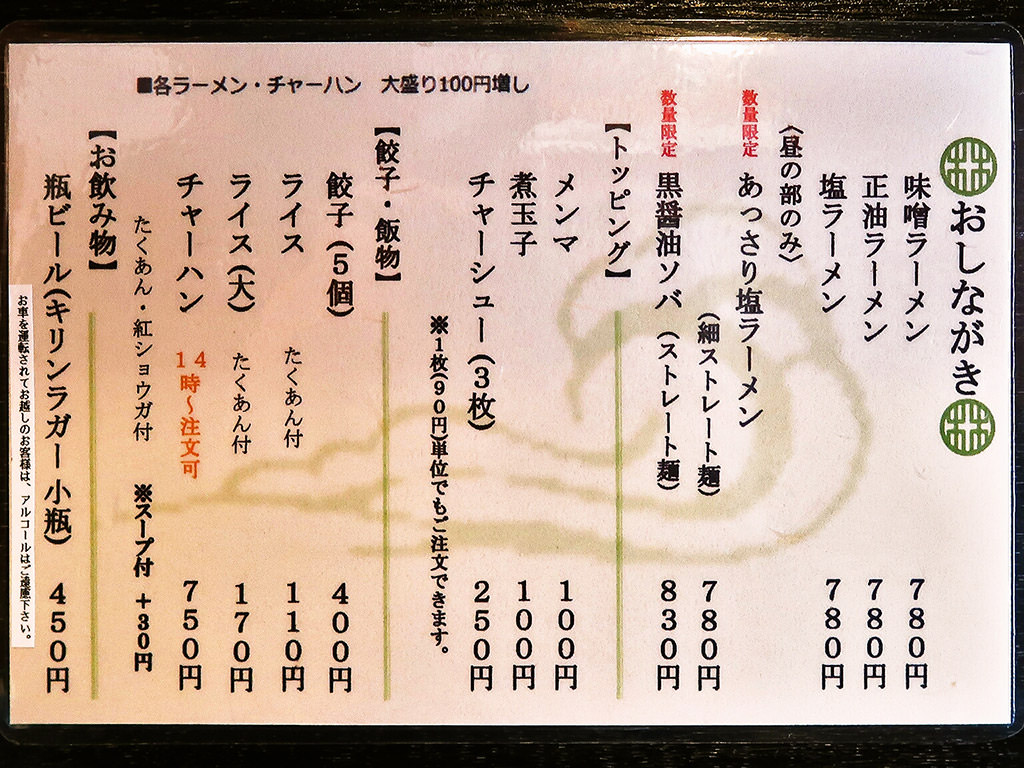 ■各ラーメン・チャーハン　大盛り100円増し
林 おしながき 林
味噌ラーメン　７８０円
正油ラーメン　７８０円
塩ラーメン　７８０円
〈昼の部のみ〉
数量限定 あっさり塩ラーメン
（細ストレート麺）　７８０円
数量限定 黒醤油ソバ（ストレート麺）　８３０円
【トッピング】
メンマ　１００円
煮玉子　１００円
チャーシュー（３枚）　２５０円
※１枚（９０円）単位でもご注文できます。
【餃子・飯物】
餃子（５個）　４００円
ライス　たくあん付　１１０円
ライス（大）　たくあん付　１７０円
チャーハン　１４時〜注文可　７５０円
たくあん・紅ショウガ付　※スープ付　＋３０円
【お飲み物】
瓶ビール（キリンラガー 小瓶）　４５０円
お車を運転されてお越しのお客様は、アルコールはご遠慮下さい。